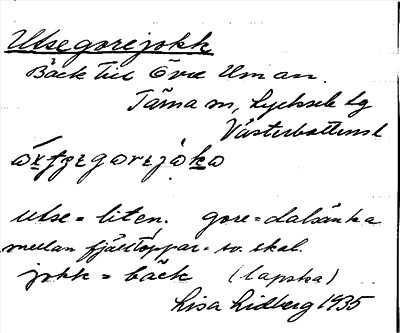 Utsegorejokk
Bäck till Övre Uman.
Tärna sn, Lycksele lg
Västerbottens l
utse = liten. gore = dalsänka
mellan fjälltoppar = sv. skal.
jokk = bäck (lapska)
Lisa Lidberg 1935